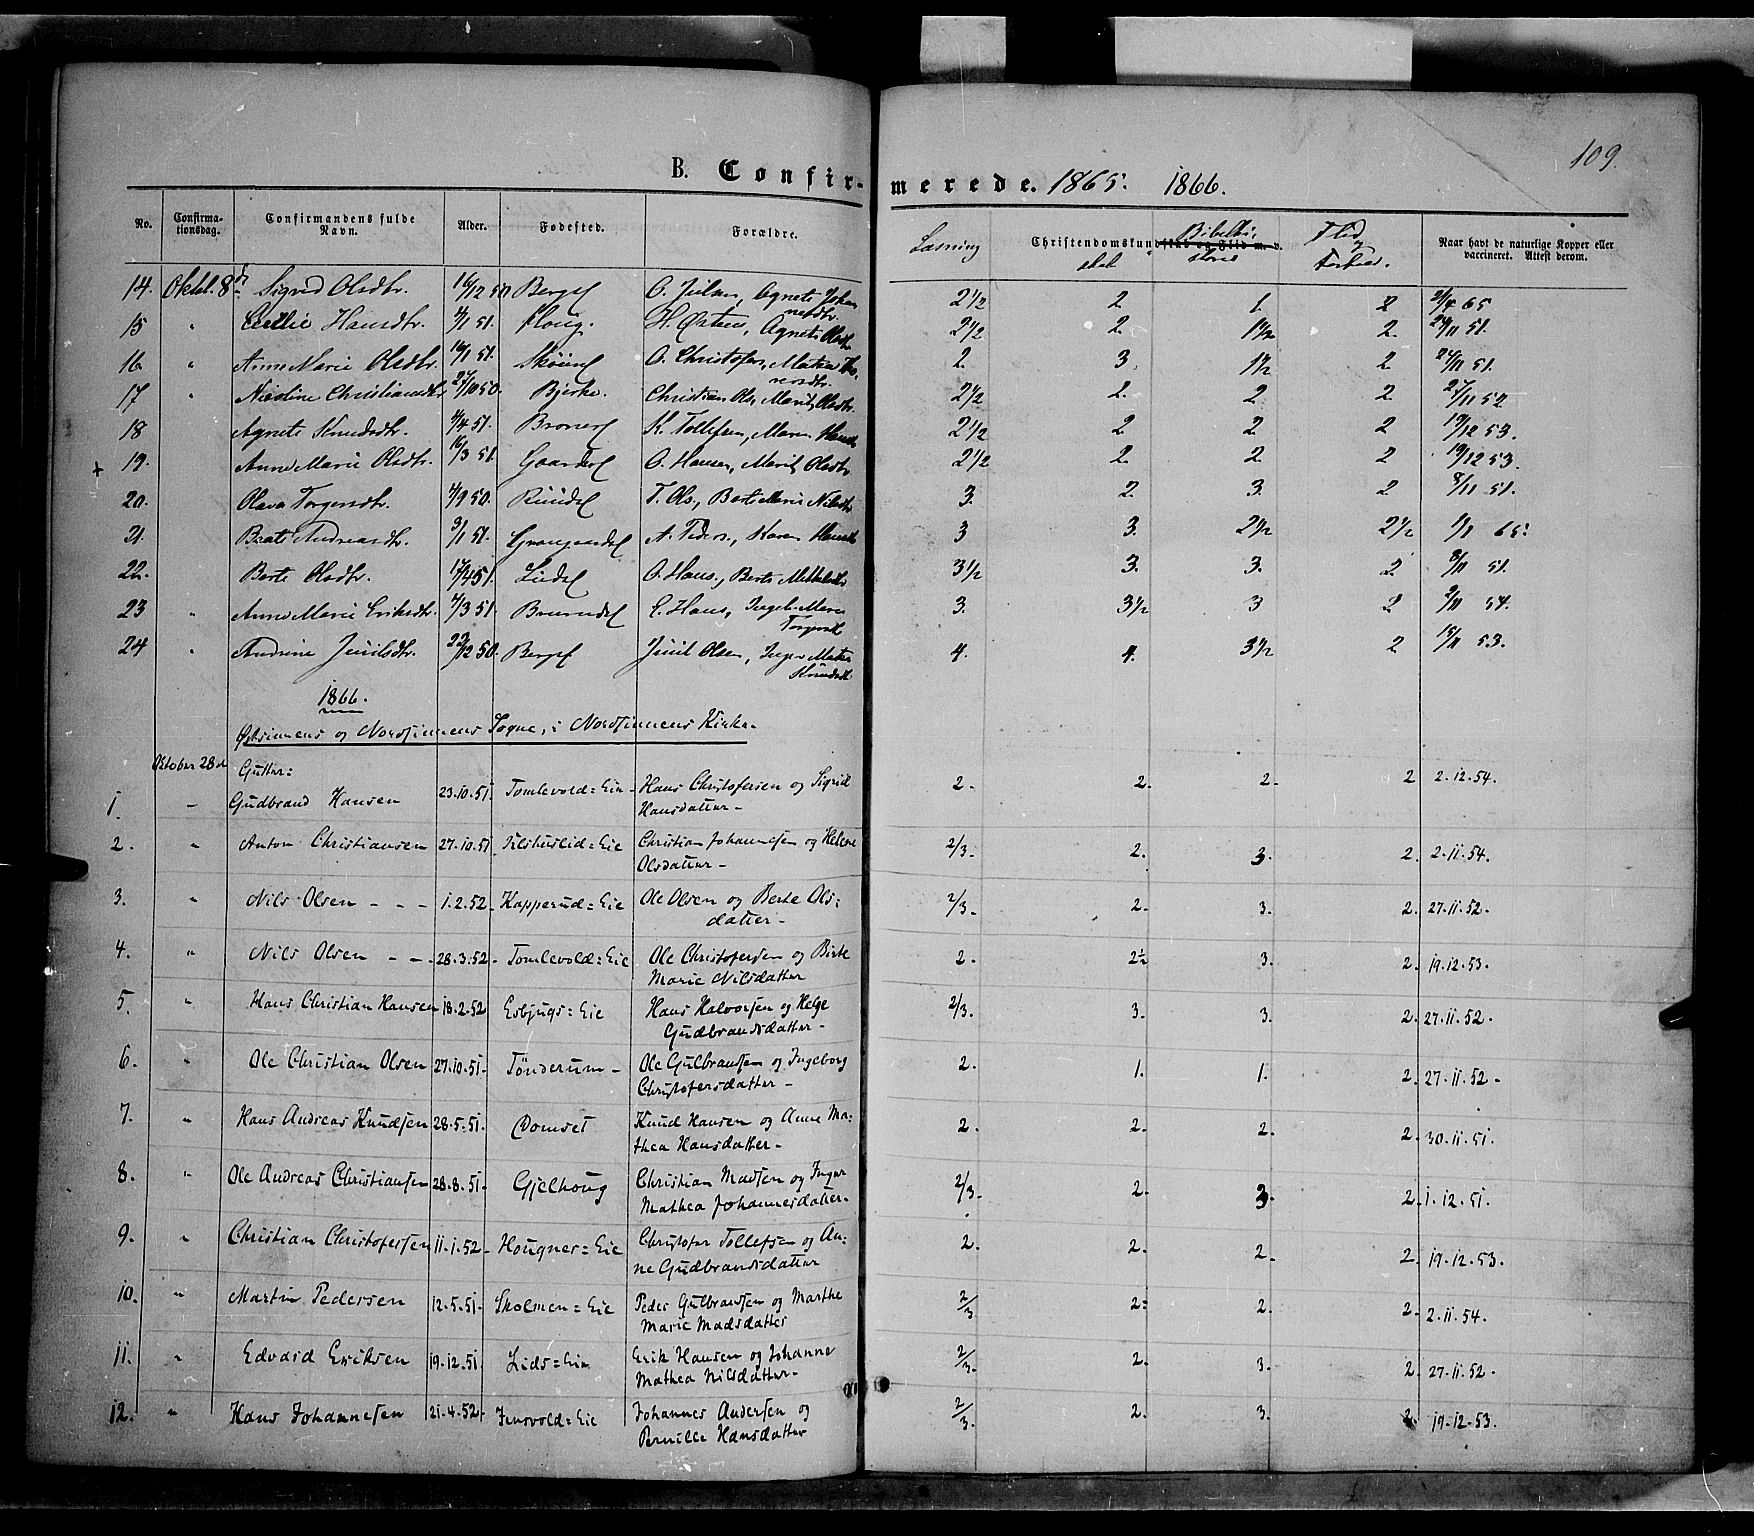 109.
B. Confirmerede. 1865. 1866.
No. Confirmationsdag. Confirmandens fulde Navn. Alder. Fødested. Forældre. Læsning Christendomskundskab og Flid m. v. Flid og Forhold. Naar havt de naturlige Kopper eller vaccineret. Attest derom.
14. Oktbl. 8d Sigrid Olsdtr. 16/12 50 O. Juilsn, Agnete Johannesdtr. 2½ 2 1 2 65
15 " Hansdtr. 51. Houg. H. Østen, Agnete Olsdtr 2½ 2 1½ 2. 24/11 51.
16. " Anne Marie Olsdtr. 51. O. Christofers, Mathea 2. 3. 1½ 2 24/11 51.
17 " Nicoline Christiansdtr 27/10 50. Bjerke. Christian Ols, Marit Olsdtr. 2½ 2. 2 2 27/11 52
18 Agnete Knudsdtr. 4/4 51. K. Tollefsen, Maren 2½ 2 2 2 19/12 53.
+ 19. Anne Marie Olsdtr. 16/3 51. O. Hansen, Marit Olsdtr. 2½ 2. 2 2 19/12 53.
20. Olava Torgersdtr. 50. T. Ols, Berte Marie Nilsdtr 3. 2. 3. 2 8/11 51.
21. Beate Andreasdtr. 3/1 51. A. Peders., Karen 3 3. 2½ 2½ 65.
22. Berte Olsdtr. 17/4 51. O. Hans., Berte 3½ 3. 3. 2 8/11 51.
23 " Anne Marie Eriksdtr. 51. E. Hans, Ingeb. Marie Torgersdt 3. 3½ 3 2 54.
24 " Andrine Juilsdtr. 22/12 50. Juil Olsen, Inger Mathea Knudsdt 4. 4. 3½ 2 15/11 53.
1866.
Østsinnens og Nordsinnens Sogne, i Nordsinnens Kirke.
Oktober 28d Gutter:
1. " Gudbrand Hansen 23.10.51. Tomlevold=Eie Hans Christofersen og Sigrid Hansdatter - 2. 2. 2. 2 2.12.54.
2. " Anton Christiansen 27.10.51 =Eie Christian Johannesen og Helene Olsdatter - 2/3. 2. 3. 2. 2.11.54.
3. " Nils Olsen - - - 1.2.52. Kapperud=Eie Ole Olsen og Berte Olsdatter - 2/3. 2. 3. 2. 27.11.52.
4. " Nils Olsen - - 28.3.52. Tomlevold=Eie Ole Christofersen og Birte Marie Nilsdatter 2. 2½ 3. 2. 19.12.53.
5. " Hans Christian Hansen 18.2.52 Esbjugs=Eie Hans Halvorsen og Helge Gudbrandsdatter - 2/3. 3. 3. 2. 27.11.52.
6. " Ole Christian Olsen 27.10.51. Tönderum - Ole Gulbransen og Ingeborg Christofersdatter - 2. 1. 1. 2. 27.11.52 -
7. " Hans Andreas Knudsen 28.5.51. Domset Knud Hansen og Anne Mathea Hansdatter - 2. 2. 2. 2. 30.11.51.
8. " Ole Andreas Christiansen 28.8.51. Gjelhoug Christian Madsen og Inger Mathea Johannesdatter - 2/3. 2. 3. 2. 1.12.51.
9. " Christian Christofersen 11.1.52. Hougner=Eie Christofer Tollefsen og Anne Gudbrandsdatter 2. 2. 2. 2. 19.12.53.
10. " Martin Pedersen 12.5.51. Skolmen=Eie Peder Gulbrandsen og Marthe Marie Madsdatter 2/3 2. 2. 2. 2.11.54.
11. " Edvard Eriksen 19.12.51. Lids=Eie Erik Hansen og Johanne Mathea Nilsdatter - 2/3. 2. 3. 2. 27.11.52.
12. " Hans Johannesen 21.4.52. Jensvold=Eie Johannes Andersen og Pernille Hansdatter 2/3. 2. 3. 2. 19.12.53.